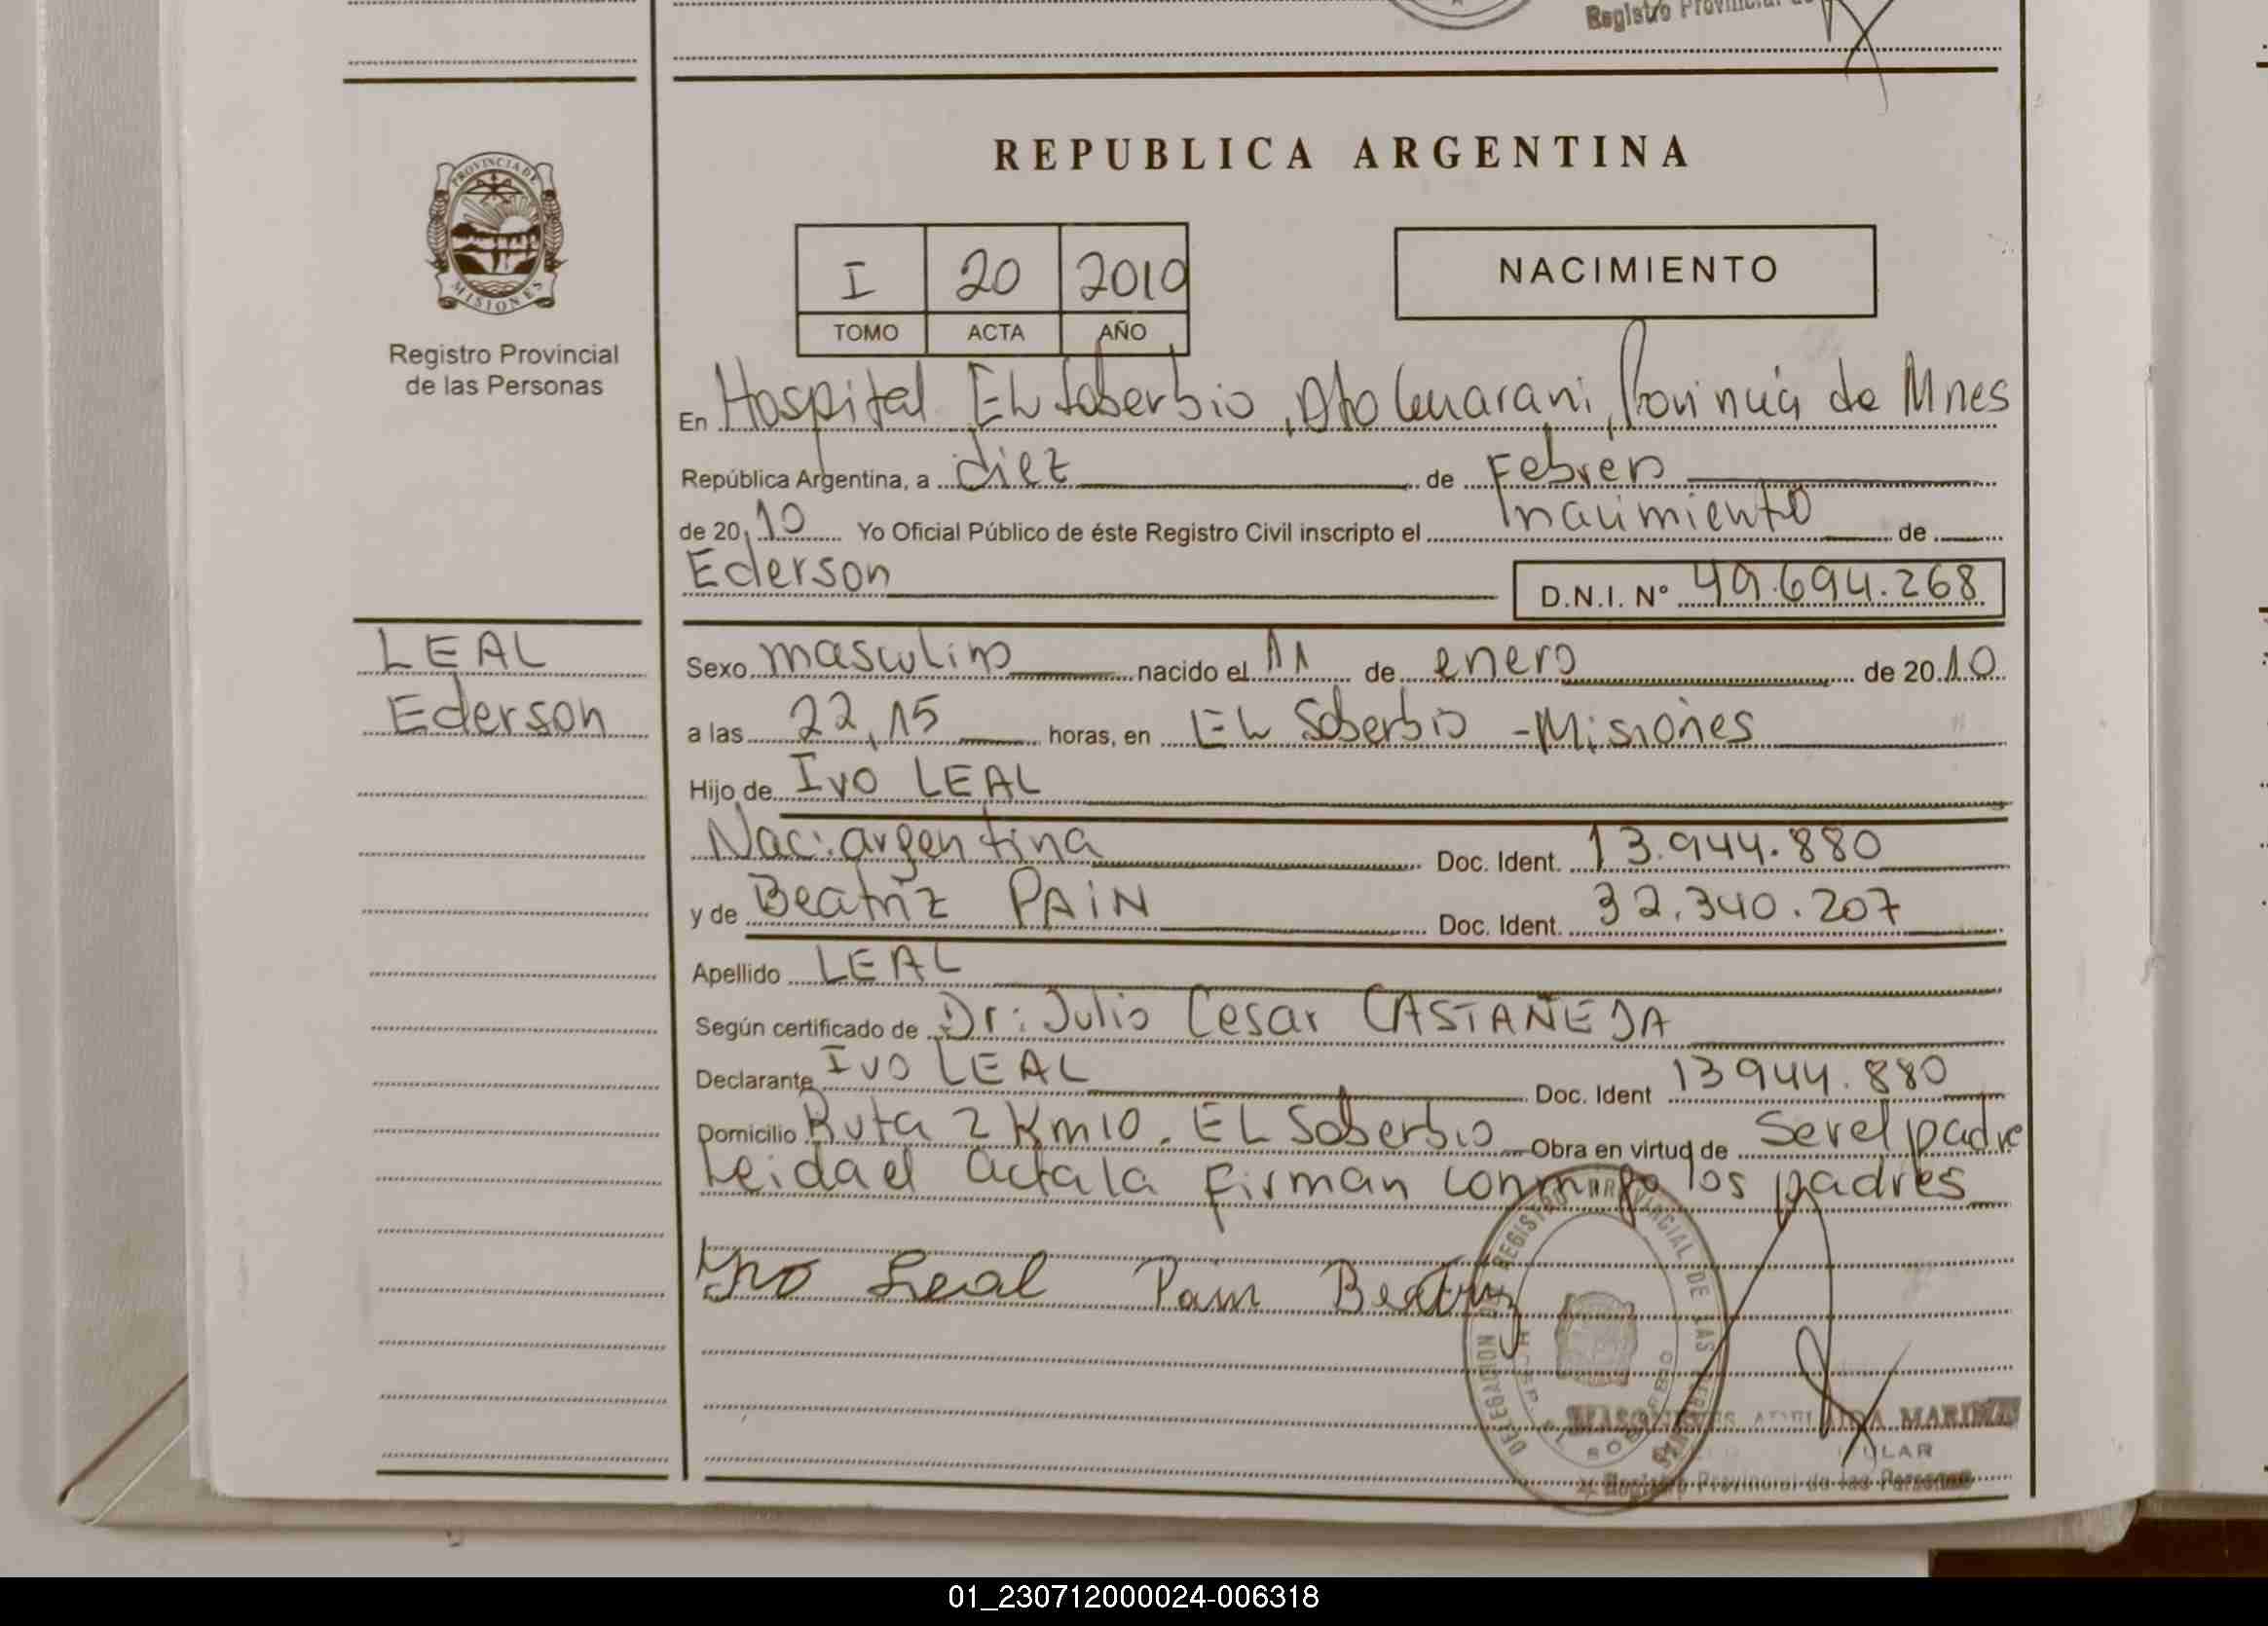 Registro Provincial de
REPUBLICA ARGENTINA
PROVINCIA DE
MISIONES
Registro Provincial
de las Personas
I 20 2010
TOMO ACTA AÑO
NACIMIENTO
En Hospital EL Soberbio, Dto Guarani, Provincia de Mnes
República Argentina, a diez de Febrero
de 20 10 Yo Oficial Público de éste Registro Civil inscripto el nacimiento de
Ederson D.N.I. Nº 49.694.268
LEAL
Ederson
Sexo masculino nacido el 11 de enero de 20 10
a las 22,15 horas, en EL Soberbio - Misiones
Hijo de Ivo LEAL
Nac: argentina Doc. Ident. 13.944.880
y de Beatriz PAIN Doc. Ident. 32.340.207
Apellido LEAL
Según certificado de Dr: Julio Cesar CASTAÑEDA
Declarante Ivo LEAL Doc. Ident 13944.880
Domicilio Ruta 2 Km10. EL Soberbio Obra en virtud de Ser el padre
Leida el acta la firman conmigo los padres
Ivo Leal Pain Beatriz
DELEGACION REGISTRO PROVINCIAL DE LAS PERSONAS
HOSP. EL SOBERBIO
ADELAIDA MARIN
TITULAR
Registro Provincial de las Personas
01_230712000024-006318